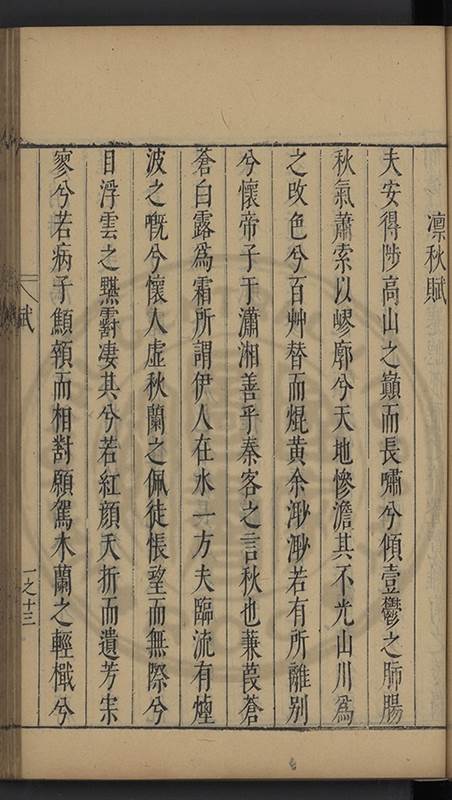 凛秋賦
夫安得陟高山之巔而長嘯兮傾壹鬱之肺腸
秋氣蕭索以嵺廓兮天地慘澹其不光山川爲
之攺色兮百艸替而焜黃余渺渺若有所離别
兮懷帝子于瀟湘善乎秦客之言秋也蒹葭蒼
蒼白露爲霜所謂伊人在水一方夫臨流有煙
波之嘅兮懷人虛秋蘭之佩徒悵望而無際兮
目浮雲之黮䨴凄其兮若紅顔夭折而遺芳宋
寥兮若病子顦顇而相對願駕木蘭之輕檝兮
賦
一之十三